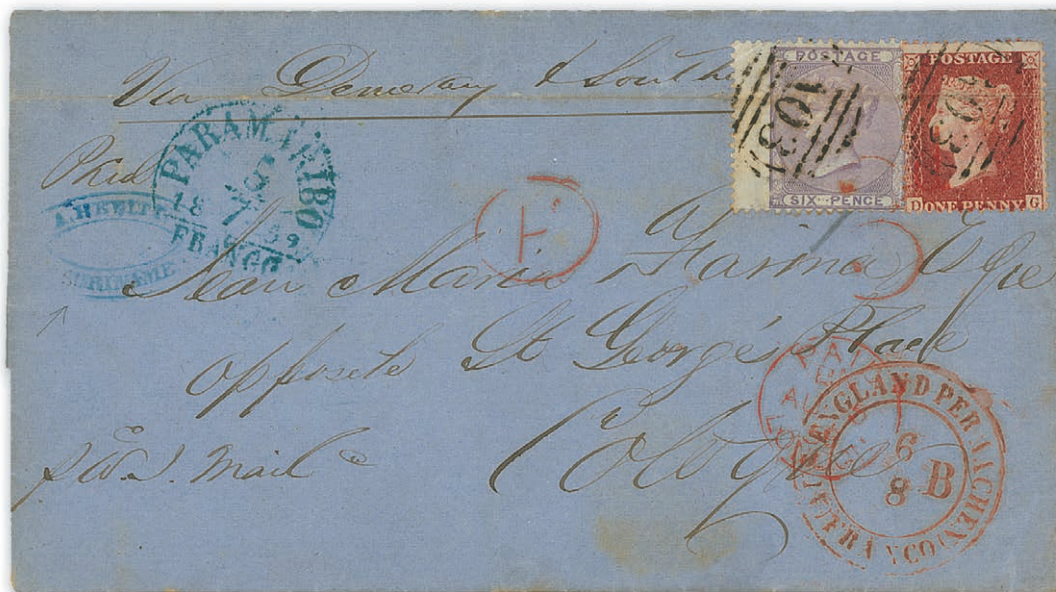 Via Demerary & Southe
POSTAGE
SIX PENCE
POSTAGE
ONE PENNY
D G
Paid
PARAMARIBO
FRANCO
SURINAME
Jean Maria Farina &
opposite St George's Place
Cologne
p W. I. Mail
PAID
ENGLAND PER AACHEN
FRANCO
6
8
B